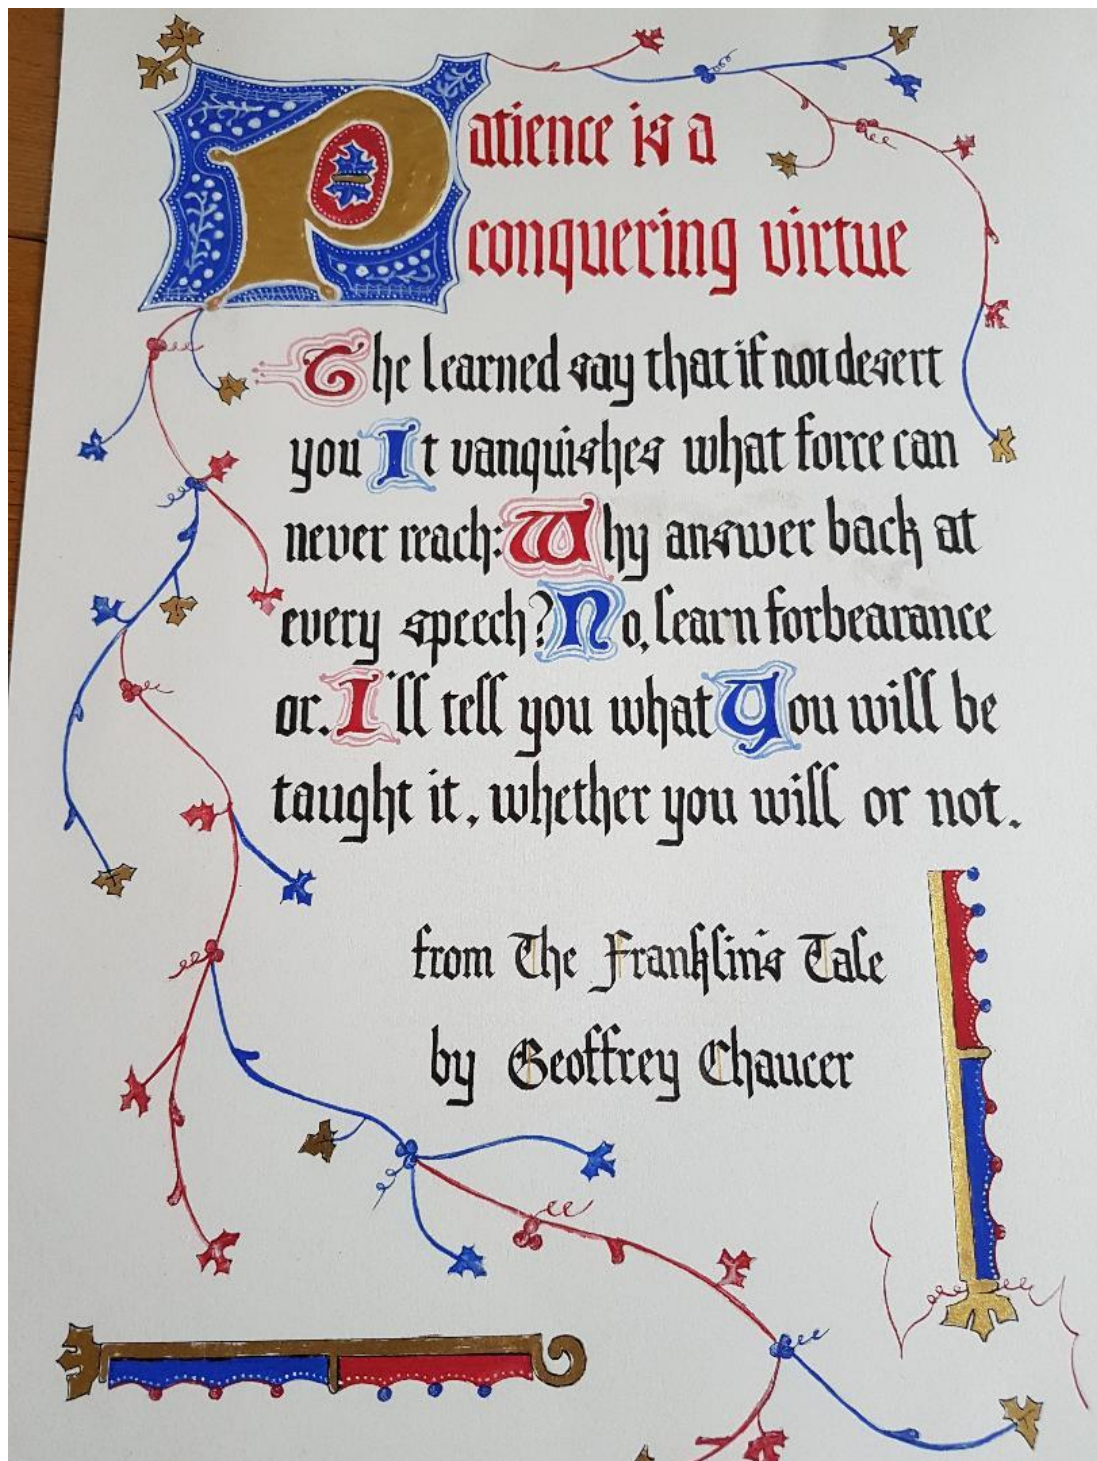 Patience is a
conquering virtue
The learned say that if not desert
you It vanquishes what force can
never reach: Why answer back at
every speech? No, learn forbearance
or. I'll tell you what You will be
taught it, whether you will or not.
from The Franklin's Tale
by Geoffrey Chaucer